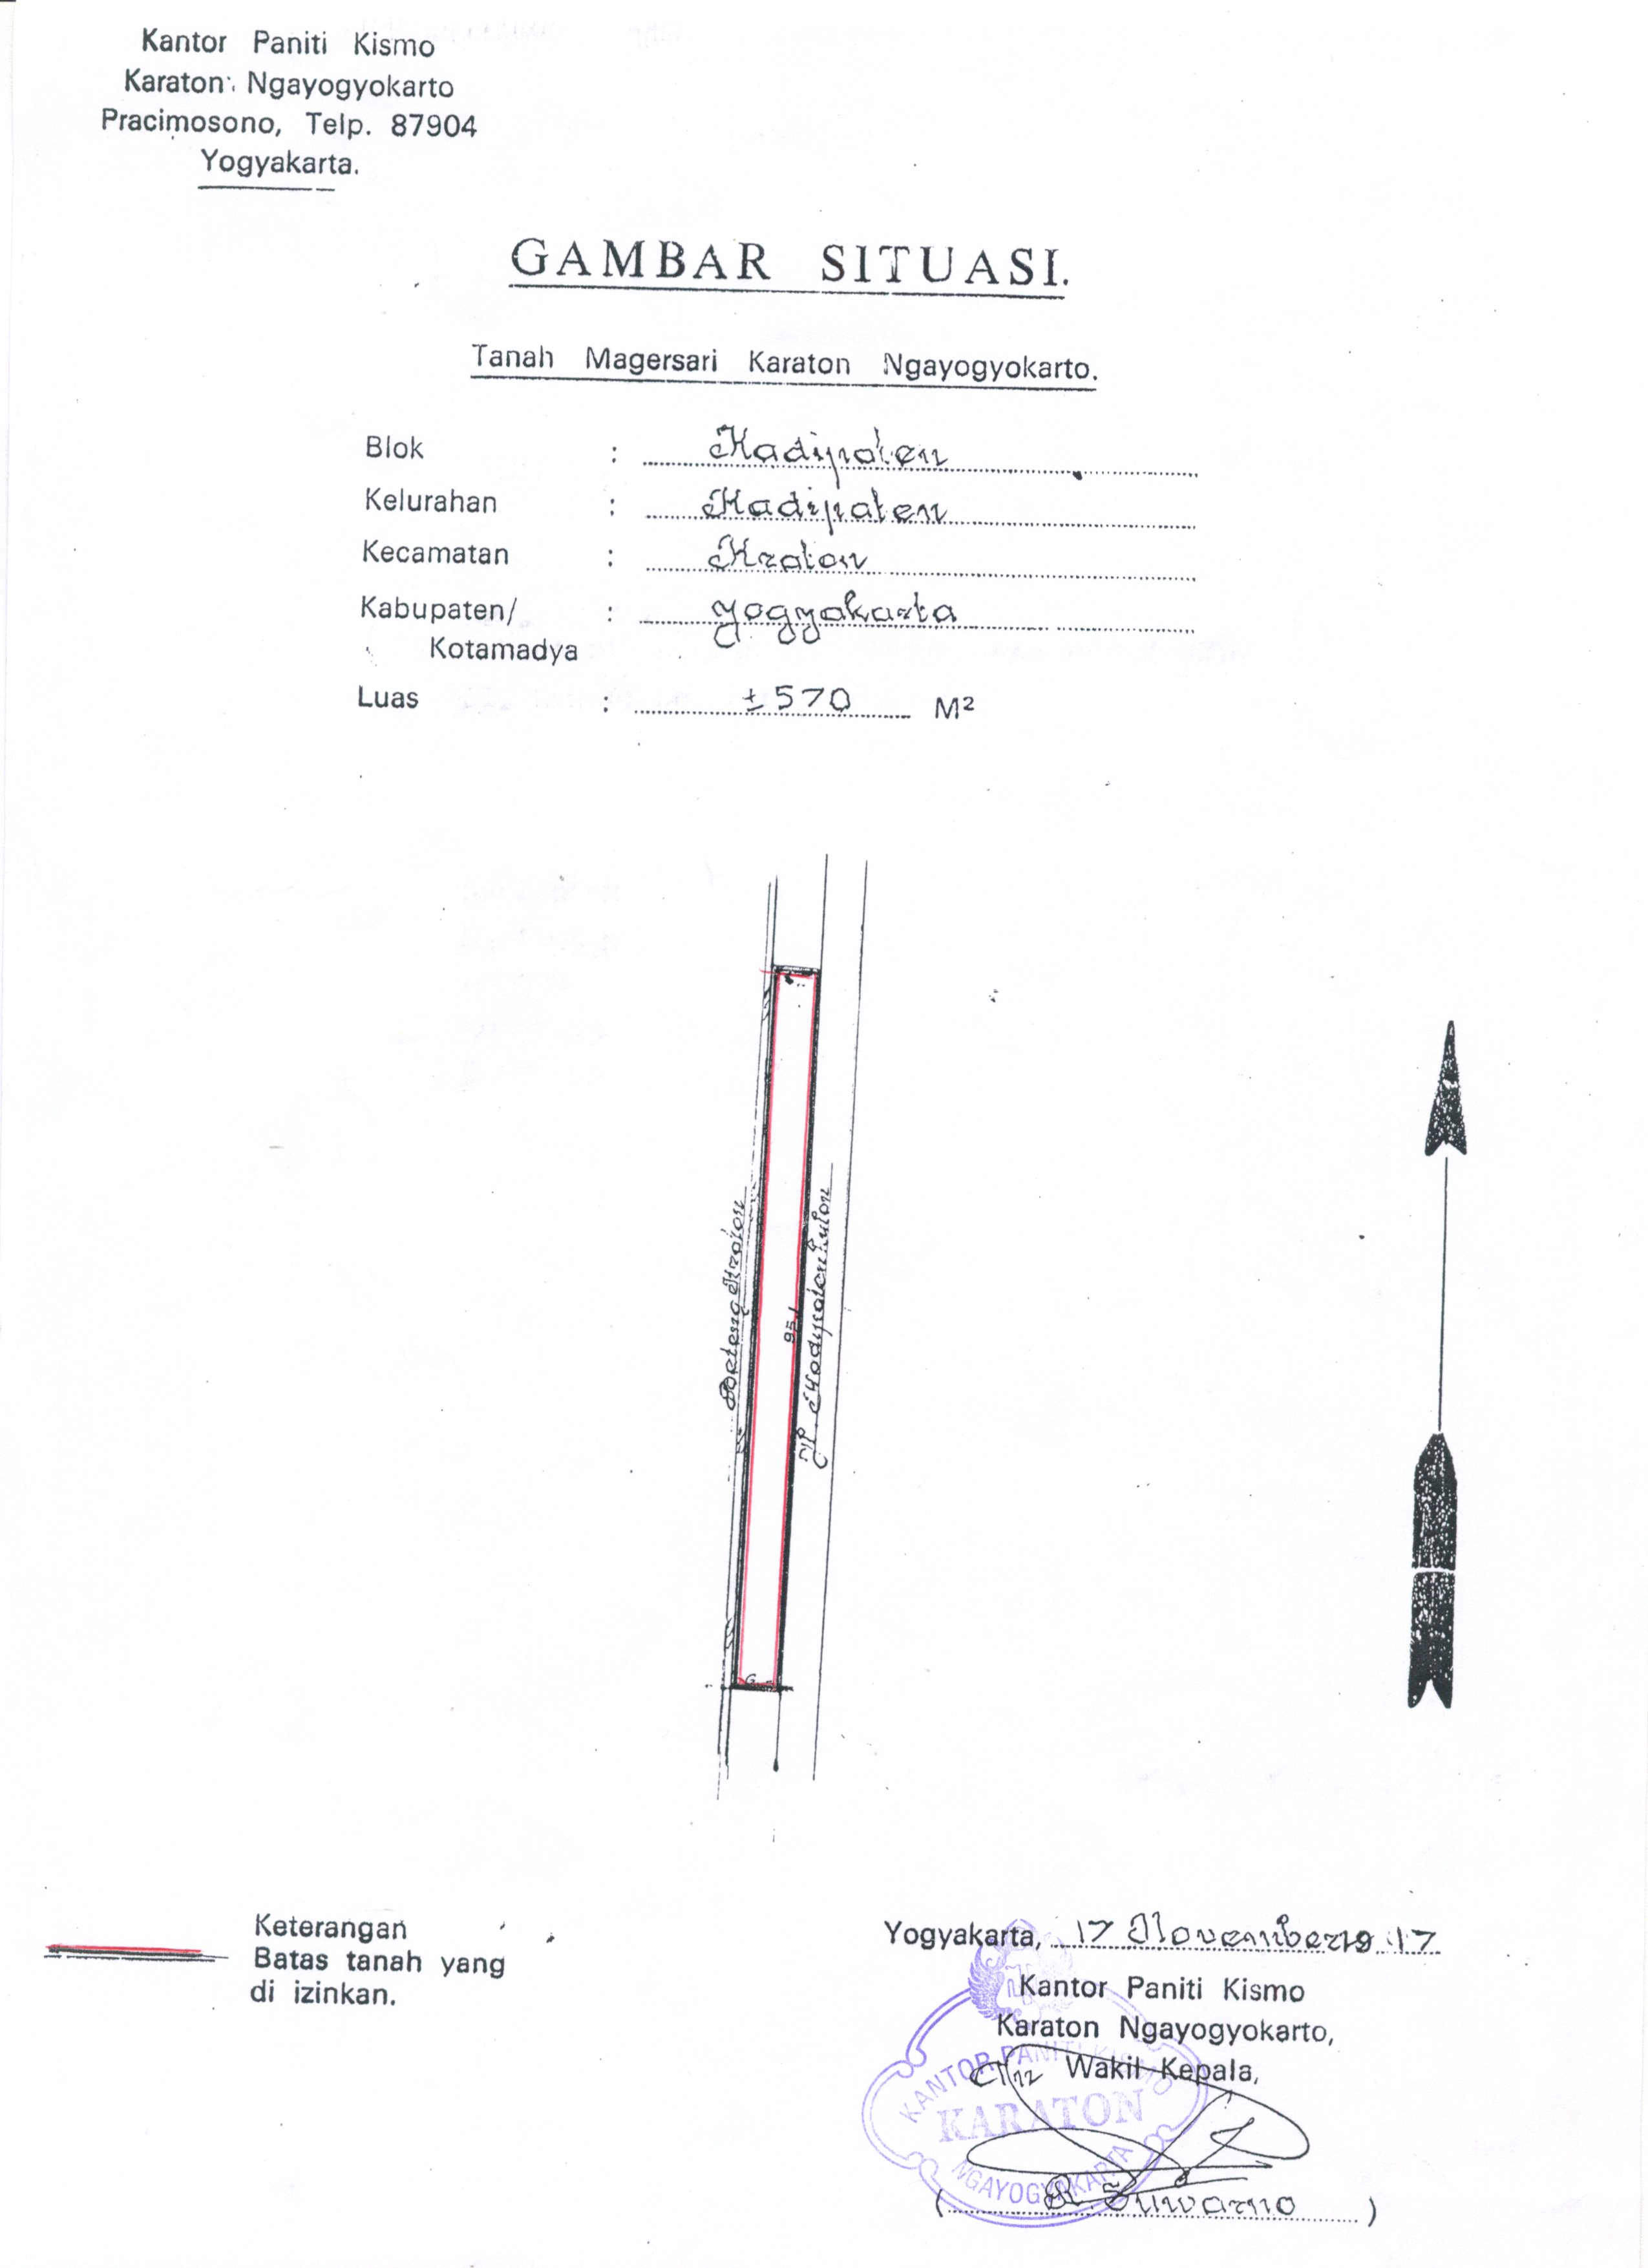 Kantor Paniti Kismo
Karaton Ngayogyokarto
Pracimosono, Telp. 87904
Yogyakarta.
GAMBAR SITUASI.
Tanah Magersari Karaton Ngayogyokarto.
Blok : Kadipaten
Kelurahan : Kadipaten
Kecamatan : Kraton
Kabupaten/ : Yogyakarta
Kotamadya
Luas : ±570 M²
Beteng Kraton
95
Jl. Kadipaten Kulon
6
Keterangan
Batas tanah yang
di izinkan.
Yogyakarta, 17 November 19 17
Kantor Paniti Kismo
Karaton Ngayogyokarto,
Wakil Kepala,
KANTOR PANITI KISMO
KARATON
NGAYOGYAKARTA
( R. Suwarno )